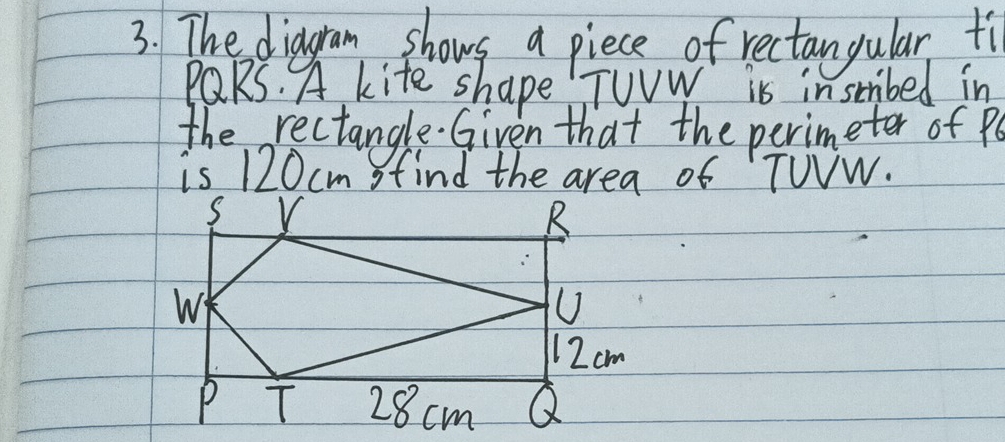 3. The diagram shows a piece of rectangular
PQRS. A kite shape TUVW is inscribed in
the rectangle. Given that the perimeter of
is 120cm, find the area of TUVW.
S V R
W U
12cm
P T 28cm Q